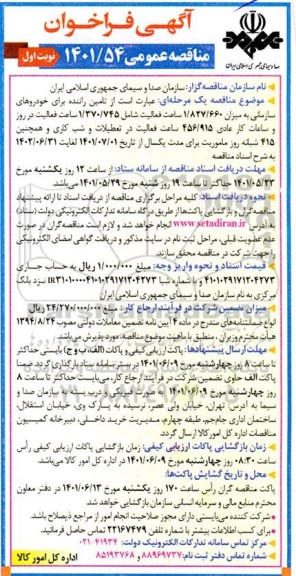 آگهی فراخوان
مناقصه عمومی ۱۴۰۱/۵۴
نوبت اول
صدا و سیمای جمهوری اسلامی ایران
نام سازمان مناقصه‌گزار: سازمان صدا و سیمای جمهوری اسلامی ایران
موضوع مناقصه یک مرحله‌ای: عبارت است از تامین راننده برای خودروهای
سازمانی به میزان ۱/۸۲۷/۶۶۰ ساعت فعالیت شامل ۱/۳۷۰/۷۴۵ ساعت فعالیت در روز
و ساعات کار عادی ۴۵۶/۹۱۵ ساعت فعالیت در تعطیلات و شب کاری و همچنین
۴۱۵ شبانه روز ماموریت برای مدت یکسال از تاریخ ۱۴۰۱/۰۷/۰۱ لغایت ۱۴۰۲/۰۶/۳۱
به شرح اسناد مناقصه
مهلت دریافت اسناد مناقصه از سامانه ستاد: از ساعت ۱۲ روز یکشنبه مورخ
۱۴۰۱/۰۵/۲۳ حداکثر تا ساعت ۱۹ روز شنبه مورخ ۱۴۰۱/۰۵/۲۹ می‌باشد.
نحوه دریافت اسناد: کلیه مراحل برگزاری مناقصه از دریافت اسناد تا ارائه پیشنهاد
مناقصه‌گران و بازگشایی پاکت‌ها از طریق درگاه سامانه تدارکات الکترونیکی دولت (ستاد)
به آدرس www.setadiran.ir انجام خواهد شد و لازم است مناقصه‌گران در صورت
عدم عضویت قبلی، مراحل ثبت نام در سایت مذکور و دریافت گواهی امضای الکترونیکی
را جهت شرکت در مناقصه محقق سازند.
قیمت اسناد و نحوه واریز وجه: مبلغ ۱/۰۰۰/۰۰۰ ریال به حساب جاری
مرکزی به نام سازمان صدا و سیمای جمهوری اسلامی ایران
میزان تضمین شرکت در فرآیند ارجاع کار: مبلغ ۲۴/۲۷۰/۰۰۰/۰۰۰ ریال
انواع ضمانتنامه‌های مندرج در ماده ۴ آیین نامه تضمین معاملات دولتی مصوب ۱۳۹۴/۸/۲۴
هیأت محترم وزیران، منطبق با ماهیت موضوع مناقصه، مورد پذیرش می‌باشد.
مهلت ارسال پیشنهادها: پاکت ارزیابی کیفی و پاکات (الف، ب و ج) بایستی حداکثر
تا ساعت ۸ روز چهارشنبه مورخ ۱۴۰۱/۰۶/۰۹ در بستر سامانه ستاد بارگذاری گردد. ضمنا
پاکت الف حاوی تضمین شرکت در فرآیند ارجاع کار، می‌بایست حداکثر تا ساعت ۸
روز چهارشنبه مورخ ۱۴۰۱/۰۶/۰۹ به صورت فیزیکی درب بسته به سازمان صدا و
سیما به آدرس: تهران، خیابان ولی عصر، نرسیده به پارک وی، خیابان استقلال،
ساختمان اداری جام‌جم، طبقه چهارم، مدیریت خرید داخلی، دبیرخانه کمیسیون
مناقصات اداره کل امور کالا ارسال گردد.
زمان بازگشایی پاکات ارزیابی کیفی: زمان بازگشایی پاکات ارزیابی کیفی رأس
ساعت ۰۸:۳۰ روز چهارشنبه مورخ ۱۴۰۱/۰۶/۰۹ در اداره کل امور کالا می‌باشد.
محل و تاریخ گشایش پاکت‌ها:
پاکت مناقصه گران رأس ساعت ۱۷۰ روز یکشنبه مورخ ۱۴۰۱/۰۶/۱۳ در دفتر معاون
محترم منابع مالی و سرمایه انسانی سازمان بازگشایی خواهد شد.
شرکت کننده می‌بایستی دارای مجوز صلاحیت انجام امور از مراجع ذیصلاح باشد.
برای کسب اطلاعات بیشتر با شماره تلفن ۲۲۱۶۷۴۷۹ تماس حاصل فرمائید.
مرکز تماس سامانه تدارکات الکترونیک دولت: ۴۱۹۳۴-۰۲۱
شماره تماس دفتر ثبت نام: ۸۸۹۶۹۷۳۷ و ۸۵۱۹۳۷۶۸
اداره کل امور کالا